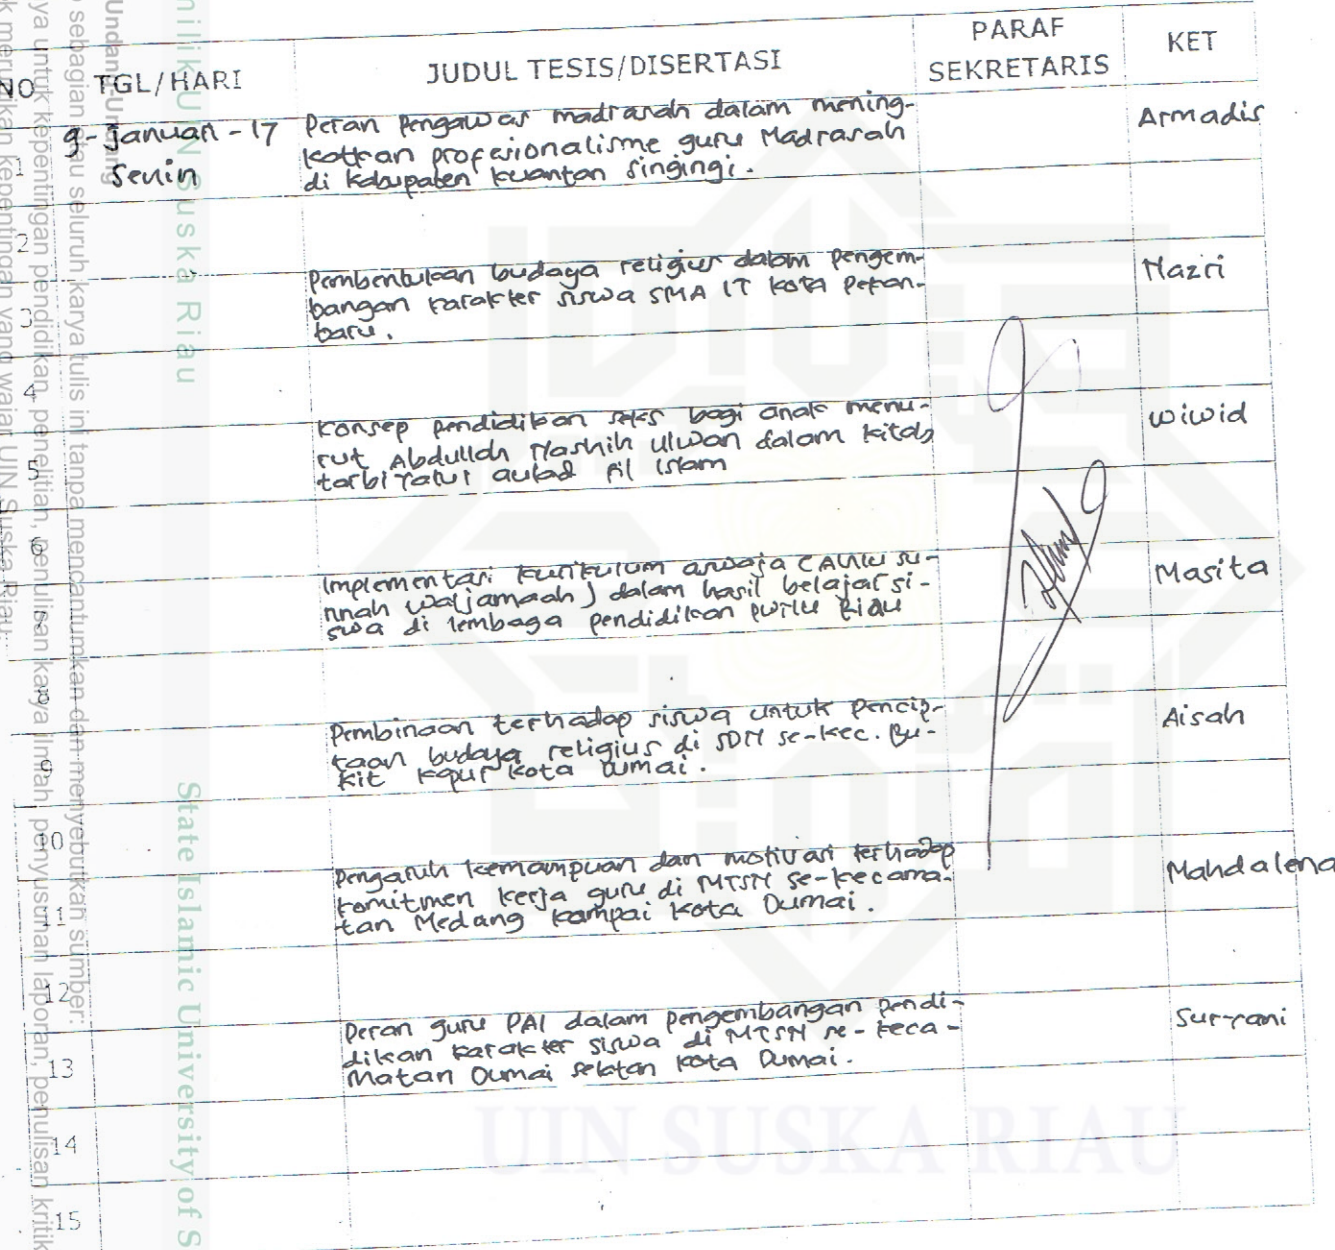 NO TGL/HARI JUDUL TESIS/DISERTASI PARAF SEKRETARIS KET
1 9-Januari-17 Senin
Peran Pengawas madrasah dalam mening-
katkan profesionalisme guru Madrasah
di Kabupaten kuantan singingi.
Armadis
2
Pembentukan budaya religius dalam pengem-
bangan karakter siswa SMA IT kota Pekan-
baru.
Nazri
3
4
Konsep pendidikan seks bagi anak menu-
rut Abdullah Nashih Ulwan dalam kitab
tarbiyatul aulad fil Islam
wiwid
5
6
Implementasi kurikulum aswaja (Ahlu su-
nnah waljamaah) dalam hasil belajar si-
swa di lembaga pendidikan pwnu Riau
Masita
7
8
Pembinaan terhadap siswa untuk pencip-
taan budaya religius di SDN se-kec. Bu-
kit kapur kota Dumai.
Aisah
9
10
Pengaruh kemampuan dan motivasi terhadap
komitmen kerja guru di MTSN se-kecama-
tan Medang kampai Kota Dumai.
Mahdalena
11
12
Peran guru PAI dalam pengembangan pendi-
dikan karakter siswa di MTSN se-keca-
matan Dumai selatan kota Dumai.
Suryani
13
14
15
milik UIN Suska Riau
State Islamic University of S
Undang-Undang
sebagian atau seluruh karya tulis ini tanpa mencantumkan dan menyebutkan sumber:
ya untuk kepentingan pendidikan, penelitian, penulisan karya ilmiah, penyusunan laporan, penulisan kritik
k merugikan kepentingan yang wajar UIN Suska Riau.
UIN SUSKA RIAU